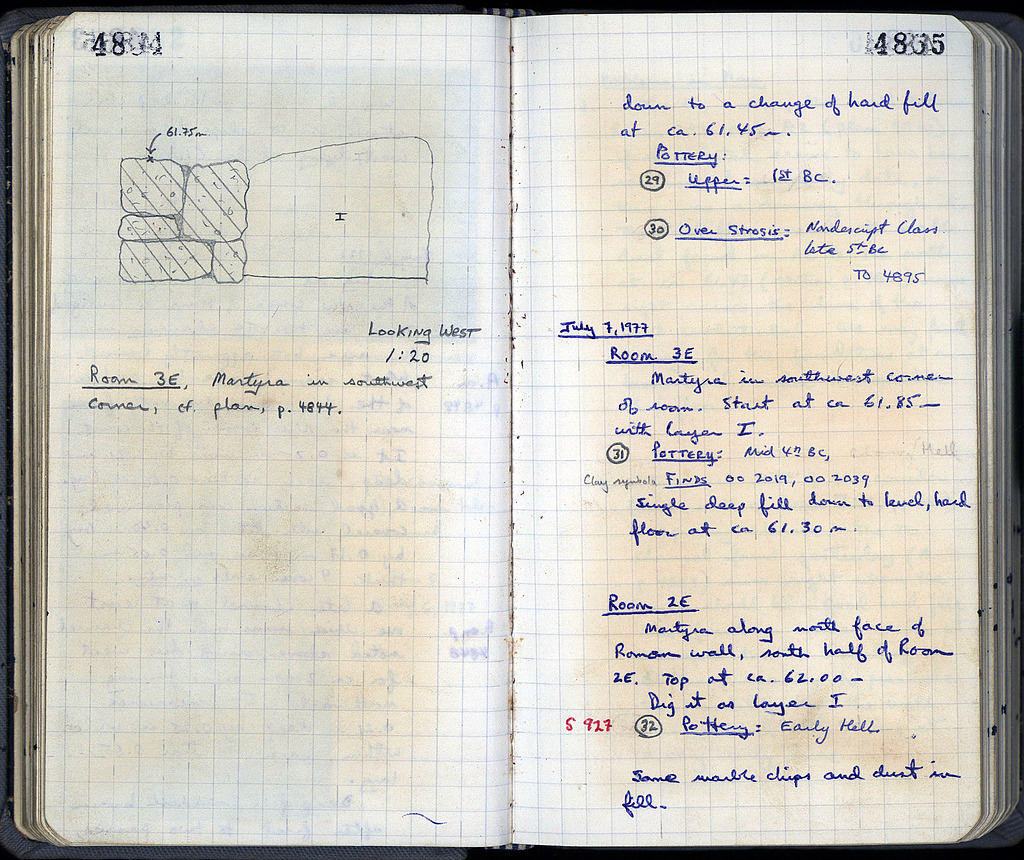 4834
61.75m
I
Looking West
1:20
Room 3E, Martyra in southwest
corner, cf. plan, p. 4844.
4835
down to a change of hard fill
at ca. 61.45m.
Pottery:
29 Upper: 1st BC.
30 Over Strosis: Nondescript Class.
late 5th BC
To 4895
July 7, 1977
Room 3E
Martyra in southwest corner
of room. Start at ca 61.85m
with layer I.
31 Pottery: Mid 4th BC,
Hell
Clay symbola Finds 00 2019, 00 2039
Single deep fill down to level, hard
floor at ca. 61.30 m.
Room 2E
Martyra along north face of
Roman wall, south half of Room
2E. Top at ca. 62.00 m
Dig it as layer I
S 927 32 Pottery: Early Hell.
Some marble chips and dust in
fill.